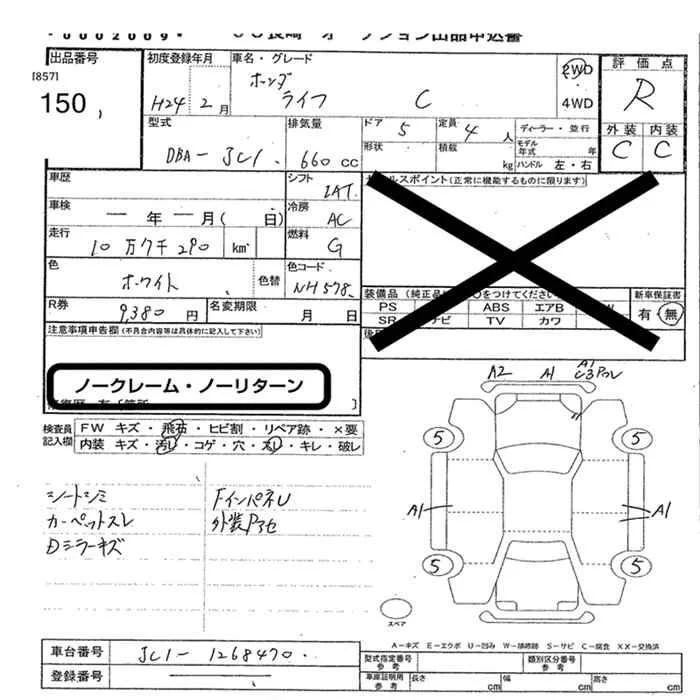 *0002009*
オークション出品申込書
出品番号
[857]
150,
初度登録年月
H24 2月
車名・グレード
ホンダ
ライフ C
2WD
4WD
評価点
R
外装 内装
C C
型式
DBA-JC1
排気量
660 cc
ドア 5
定員 4 人
ディーラー・並行
形状
積載 kg
モデル年式 年
ハンドル 左・右
車歴
シフト
IAT
セールスポイント(正常に機能するものに限ります)
車検
ー 年 ー 月( 日)
冷房
AC
走行
10万7千290 km
燃料
G
色
ホワイト
色替
色コード
NH578
装備品
PS ABS エアB
SR ナビ TV カワ
新車保証書
有 無
R券
9,380 円
名変期限
月 日
注意事項申告欄(不具合内容等は具体的に記入して下さい)
ノークレーム・ノーリターン
検査員
記入欄
FW キズ・飛石・ヒビ割・リペア跡・×要
内装 キズ・汚レ・コゲ・穴・スレ・キレ・破レ
シートシミ
カーペットスレ
Dミラーキズ
FインパネU
A2 A1 A1
5 5
A1 A1
5 5
スペア
A-キズ E-エクボ U-凹み W-補修跡 S-サビ C-腐食 XX-交換済
車台番号
JC1-1268470
登録番号
型式指定番号
参考
類別区分番号
参考
車庫証明用
参考
長さ cm
幅 cm
高さ cm